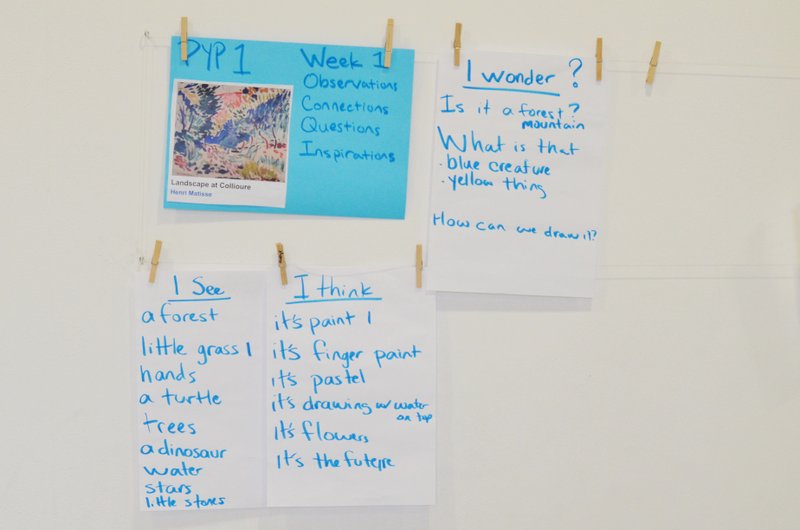 PYP 1
Week 1
Observations
Connections
Questions
Inspirations
Landscape at Collioure
Henri Matisse
I wonder?
Is it a forest?
mountain
What is that
· blue creature
· yellow thing
How can we draw it?
I See
a forest
little grass 1
hands
a turtle
trees
a dinosaur
water
stars
little stones
I think
it's paint 1
it's finger paint
it's pastel
it's drawing w/ water
on top
it's flowers
It's the